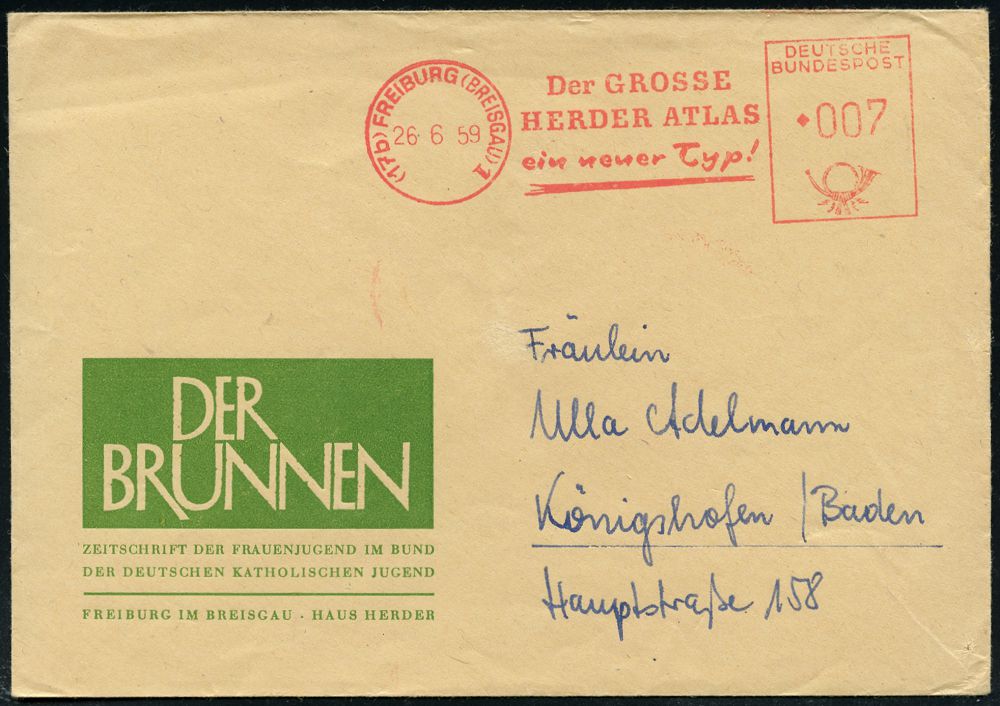 (17b) FREIBURG (BREISGAU) 1
26 6 59
Der GROSSE
HERDER ATLAS
ein neuer Typ!
DEUTSCHE
BUNDESPOST
007
Fräulein
Ulla Adelmann
Königshofen / Baden
Hauptstraße 158
DER
BRUNNEN
ZEITSCHRIFT DER FRAUENJUGEND IM BUND
DER DEUTSCHEN KATHOLISCHEN JUGEND
FREIBURG IM BREISGAU · HAUS HERDER